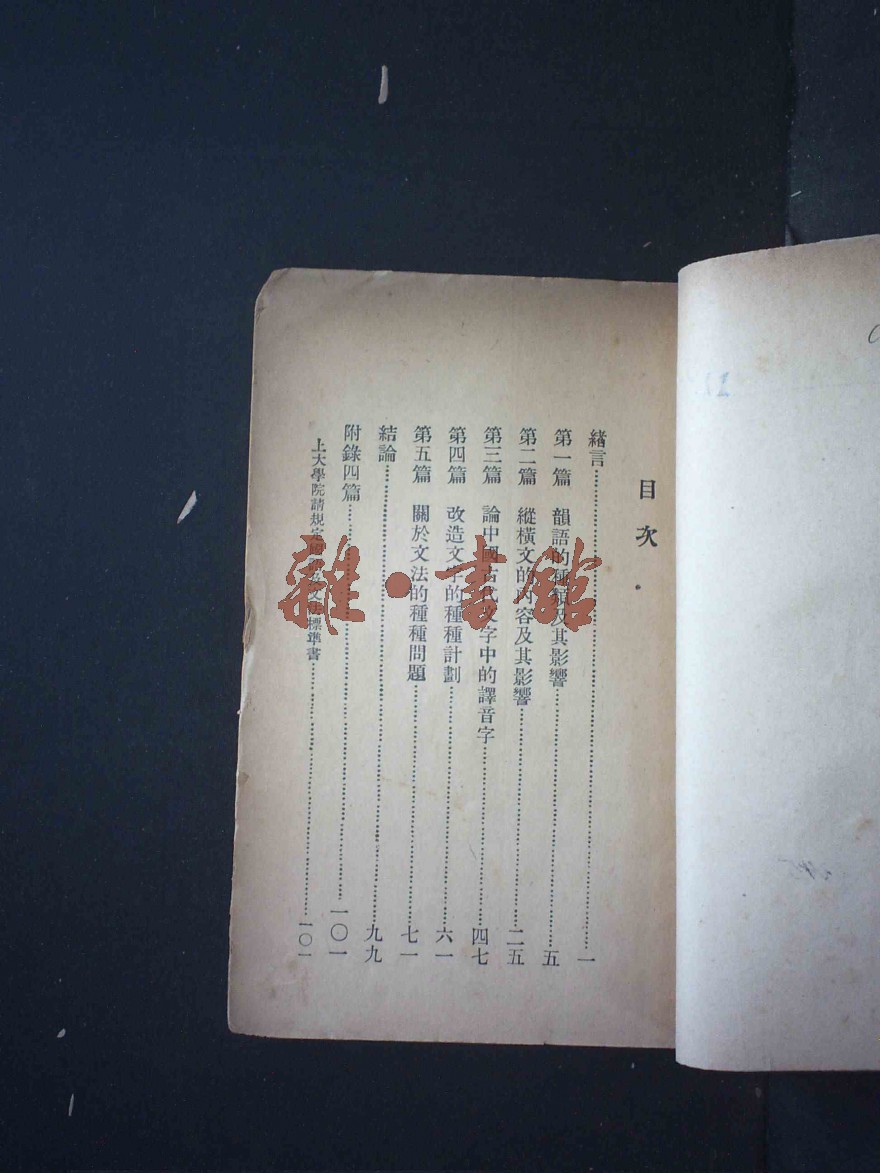 目次
緒言 一
第一篇 韻語的種類及其影響 五
第二篇 縱橫文的內容及其影響 二五
第三篇 論中國古代文字中的譯音字 四七
第四篇 改造文字的種種計劃 六一
第五篇 關於文法的種種問題 七一
結論 九九
附錄四篇 一〇一
上大學院請規定 文法標準書 一〇一
雜·書館
12